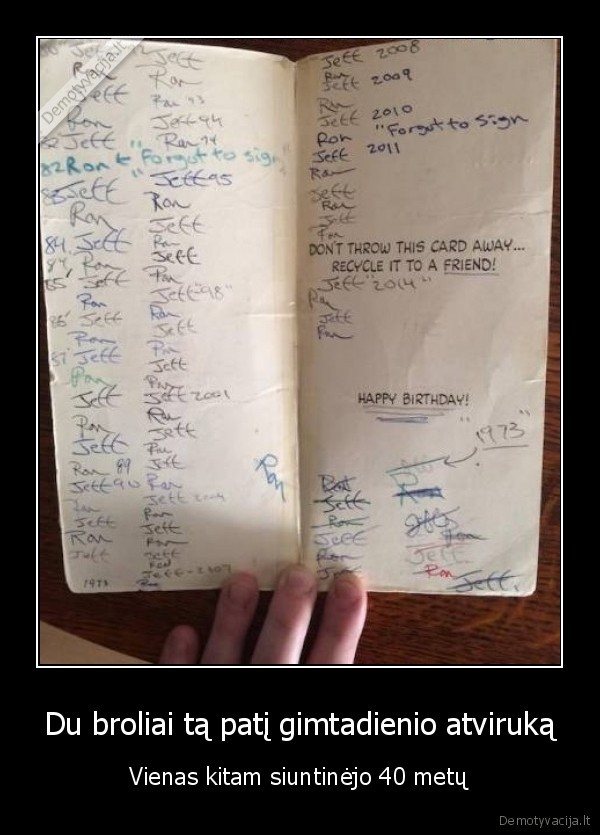 Demotyvacija.lt
Jeff
Ron
Jeff
Ron
82 Jeff
82 Ron "Forgot to sign"
83 Jeff
Ron
84 Jeff
84 Ron
85' Jeff
Ron
86' Jeff
Ron
87' Jeff
Ron
Jeff
Ron
Jeff
Ron 89
Jeff 90
Ron
Jeff
Ron
Jeff
1973
Jeff
Ron
Ron 93
Jeff 94
Ron 94
Jeff 95
Ron
Jeff
Ron
Jeff
Ron
Jeff "98"
Ron
Jeff
Ron
Jeff
Ron
Jeff 2001
Ron
Jeff
Ron
Jeff
Ron
Jeff 2004
Ron
Jeff
Ron
Jeff
Ron
Jeff - 2007
Ron
Ron
Jeff 2008
Ron
Jeff 2009
Ron
Jeff 2010
Ron "Forgot to sign
Jeff 2011
Ron
Jeff
Ron
Jeff
Ron
DON'T THROW THIS CARD AWAY...
RECYCLE IT TO A FRIEND!
Jeff "2014"
Ron
Jeff
Ron
HAPPY BIRTHDAY!
"1973"
Ron
Jeff
Ron
Jeff
Ron
Jeff
Ron
Jeff
Ron
Jeff
Ron
Jeff
Du broliai tą patį gimtadienio atviruką
Vienas kitam siuntinėjo 40 metų
Demotyvacija.lt